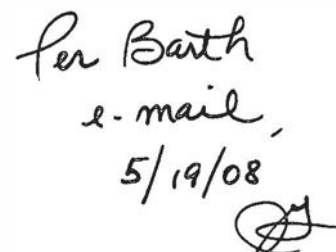 Per Barth
e-mail,
5/19/08